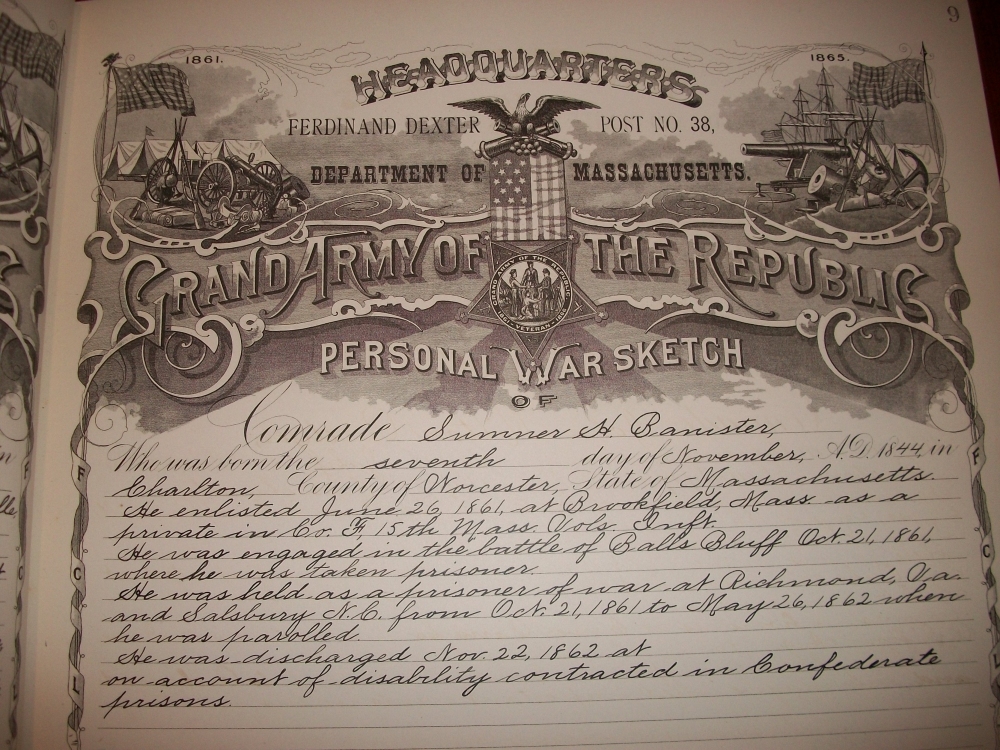 9
1861.
1865.
HEADQUARTERS
FERDINAND DEXTER POST NO. 38,
DEPARTMENT OF MASSACHUSETTS.
GRAND ARMY OF THE REPUBLIC
GRAND ARMY OF THE REPUBLIC
1861 VETERAN 1866
PERSONAL WAR SKETCH
OF
Comrade Sumner H. Banister,
Who was born the seventh day of November, A.D. 1844, in
Charlton, County of Worcester, State of Massachusetts.
He enlisted June 26, 1861, at Brookfield, Mass. as a
private in Co. F, 15th Mass. Vols. Inft.
He was engaged in the battle of Balls Bluff Oct. 21, 1861,
where he was taken prisoner.
He was held as a prisoner of war at Richmond, Va.
and Salsbury N.C. from Oct. 21, 1861 to May 26, 1862 when
he was parolled
He was discharged Nov. 22, 1862 at
on account of disability contracted in Confederate
prisons.
F
C
L
F
C
L